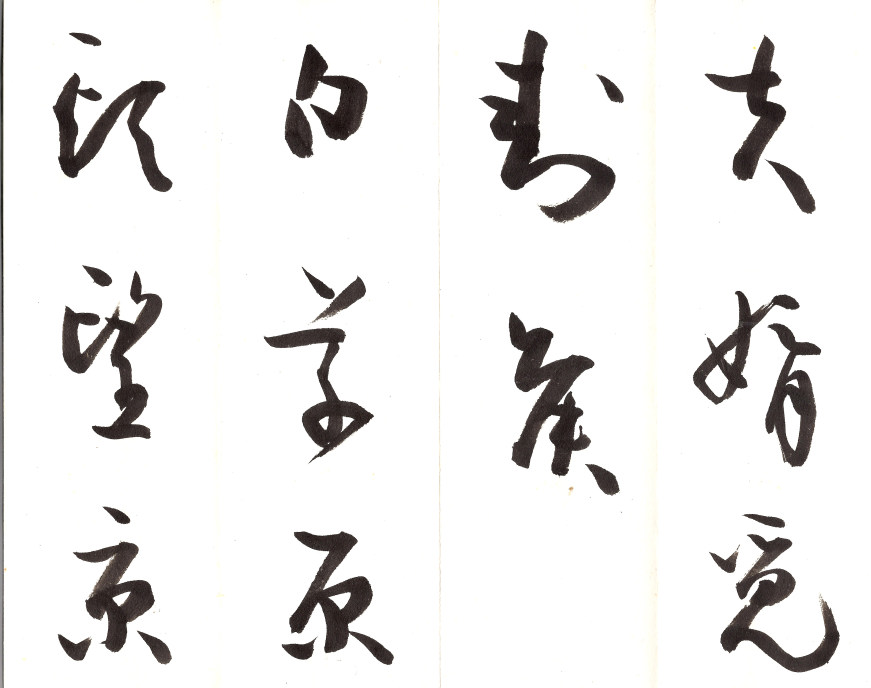 夫婿覓
封侯
白草原
頭望京